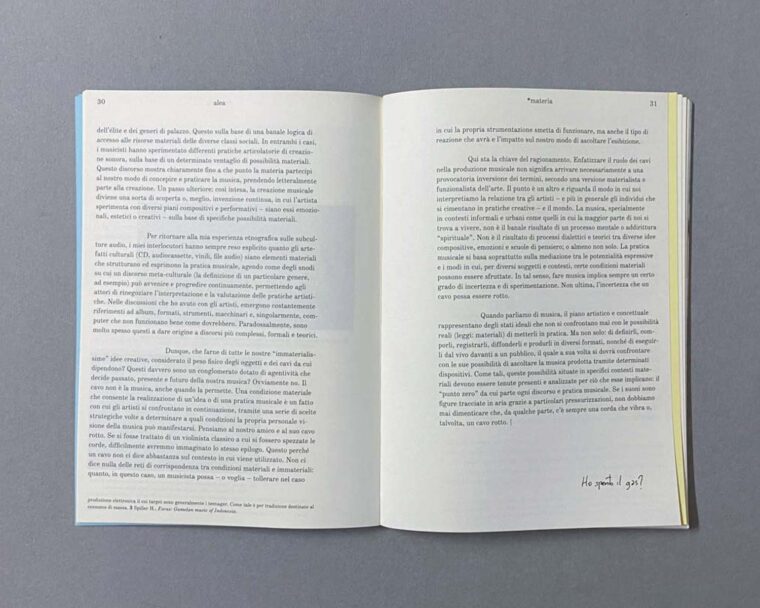 30
alea
dell'élite e dei generi di palazzo. Questo sulla base di una banale logica di
accesso alle risorse materiali delle diverse classi sociali. In entrambi i casi,
i musicisti hanno sperimentato differenti pratiche articolatorie di creazio-
ne sonora, sulla base di un determinato ventaglio di possibilità materiali.
Questo discorso mostra chiaramente fino a che punto la materia partecipi
al nostro modo di concepire e praticare la musica, prendendo letteralmente
parte alla creazione. Un passo ulteriore: così intesa, la creazione musicale
diviene una sorta di scoperta o, meglio, invenzione continua, in cui l'artista
sperimenta con diversi piani compositivi e performativi – siano essi emozio-
nali, estetici o creativi – sulla base di specifiche possibilità materiali.
Per ritornare alla mia esperienza etnografica sulle subcul-
ture audio, i miei interlocutori hanno sempre reso esplicito quanto gli arte-
fatti culturali (CD, audiocassette, vinili, file audio) siano elementi materiali
che strutturano ed esprimono la pratica musicale, agendo come degli snodi
su cui un discorso meta-culturale (la definizione di un particolare genere,
ad esempio) può avvenire e progredire continuamente, permettendo agli
attori di rinegoziare l'interpretazione e la valutazione delle pratiche artisti-
che. Nelle discussioni che ho avuto con gli artisti, emergono costantemente
riferimenti ad album, formati, strumenti, macchinari e, singolarmente, com-
puter che non funzionano bene come dovrebbero. Paradossalmente, sono
molto spesso questi a dare origine a discorsi più complessi, formali e teorici.
Dunque, che farne di tutte le nostre “immaterialis-
sime” idee creative, considerato il peso fisico degli oggetti e dei cavi da cui
dipendono? Questi davvero sono un conglomerato dotato di agentività che
decide passato, presente e futuro della nostra musica? Ovviamente no. Il
cavo non è la musica, anche quando la permette. Una condizione materiale
che consente la realizzazione di un'idea o di una pratica musicale è un fatto
con cui gli artisti si confrontano in continuazione, tramite una serie di scelte
strategiche volte a determinare a quali condizioni la propria personale vi-
sione della musica può manifestarsi. Pensiamo al nostro amico e al suo cavo
rotto. Se si fosse trattato di un violinista classico a cui si fossero spezzate le
corde, difficilmente avremmo immaginato lo stesso epilogo. Questo perché
un cavo non ci dice abbastanza sul contesto in cui viene utilizzato. Non ci
dice nulla delle reti di corrispondenza tra condizioni materiali e immateriali:
quanto, in questo caso, un musicista possa – o voglia – tollerare nel caso
produzione elettronica il cui target sono generalmente i teenager. Come tale è per tradizione destinato al
consumo di massa. 3 Spiller H., Focus: Gamelan music of Indonesia.
*materia
31
in cui la propria strumentazione smetta di funzionare, ma anche il tipo di
reazione che avrà e l'impatto sul nostro modo di ascoltare l'esibizione.
Qui sta la chiave del ragionamento. Enfatizzare il ruolo dei cavi
nella produzione musicale non significa arrivare necessariamente a una
provocatoria inversione dei termini, secondo una versione materialista e
funzionalista dell'arte. Il punto è un altro e riguarda il modo in cui noi
interpretiamo la relazione tra gli artisti – e più in generale gli individui che
si cimentano in pratiche creative – e il mondo. La musica, specialmente
in contesti informali e urbani come quelli in cui la maggior parte di noi si
trova a vivere, non è il banale risultato di un processo mentale o addirittura
“spirituale”. Non è il risultato di processi dialettici e teorici tra diverse idee
compositive, emozioni e scuole di pensiero; o almeno non solo. La pratica
musicale si basa soprattutto sulla mediazione tra le potenzialità espressive
e i modi in cui, per diversi soggetti e contesti, certe condizioni materiali
possono essere sfruttate. In tal senso, fare musica implica sempre un certo
grado di incertezza e di sperimentazione. Non ultima, l'incertezza che un
cavo possa essere rotto.
Quando parliamo di musica, il piano artistico e concettuale
rappresentano degli stati ideali che non si confrontano mai con le possibilità
reali (leggi: materiali) di metterli in pratica. Ma non solo: di definirli, com-
porli, registrarli, diffonderli e produrli in diversi formati, nonché di eseguir-
li dal vivo davanti a un pubblico, il quale a sua volta si dovrà confrontare
con le sue possibilità di ascoltare la musica prodotta tramite determinati
dispositivi. Come tali, queste possibilità situate in specifici contesti mate-
riali devono essere tenute presenti e analizzate per ciò che esse implicano: il
“punto zero” da cui parte ogni discorso e pratica musicale. Se i suoni sono
figure tracciate in aria grazie a particolari pressurizzazioni, non dobbiamo
mai dimenticare che, da qualche parte, c'è sempre una corda che vibra o,
talvolta, un cavo rotto. |
Ho spento il gas?